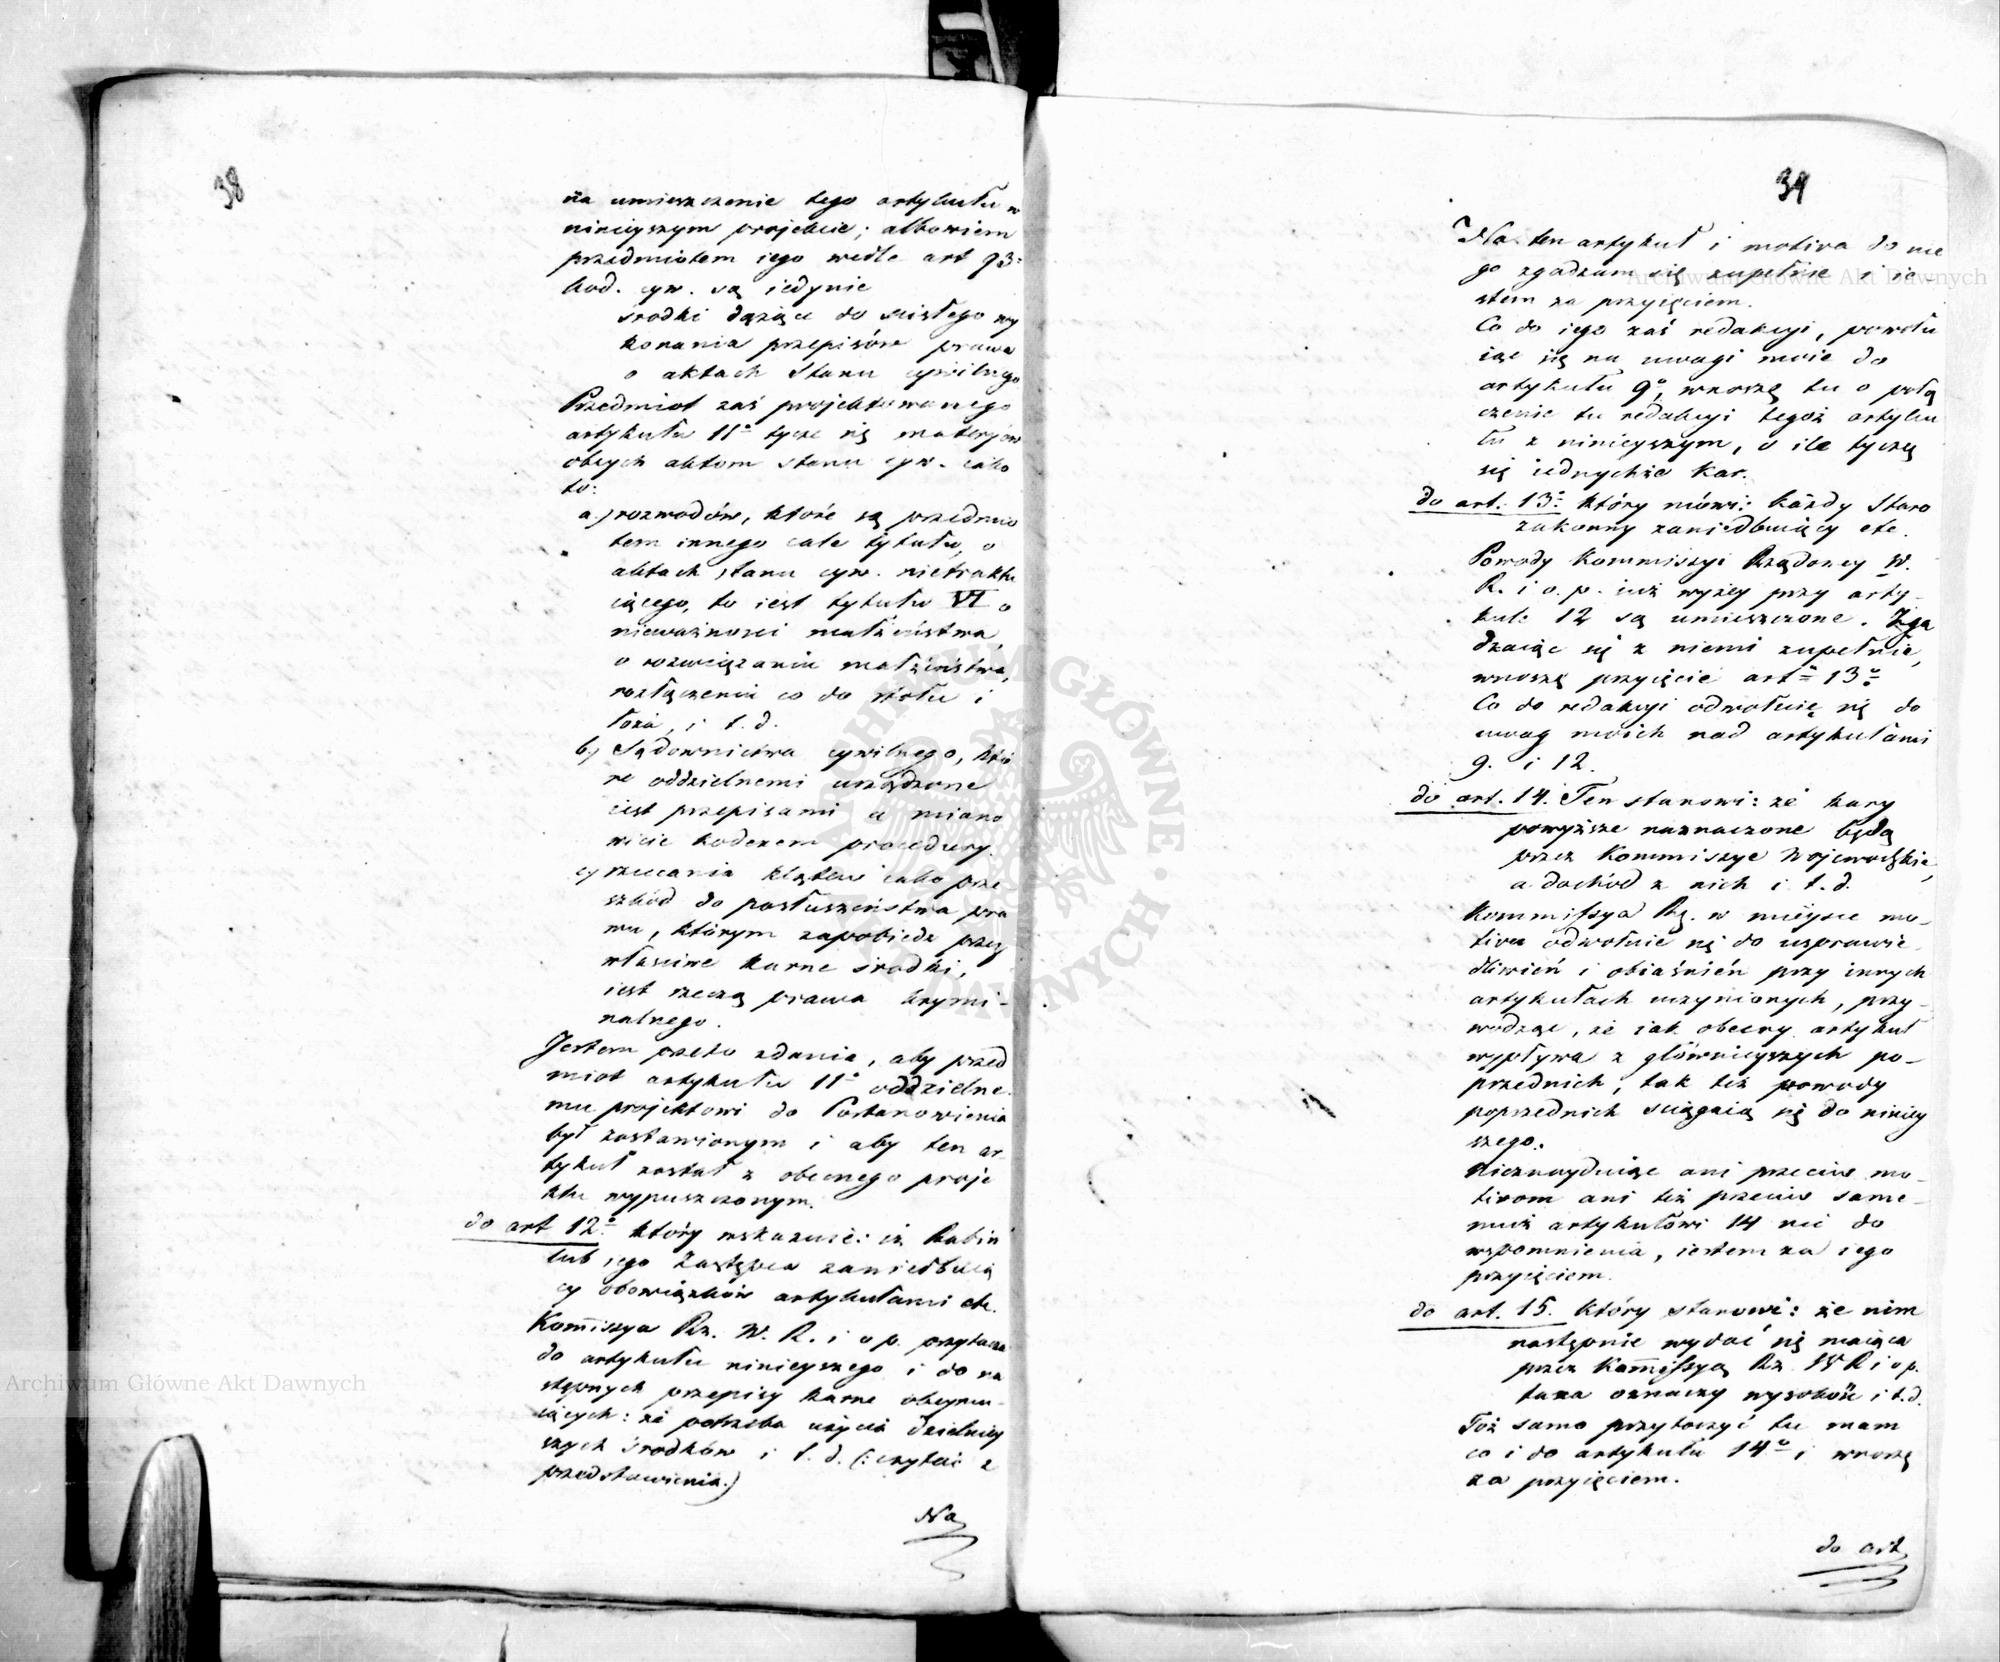 38
na umieszczenie tego artykułu w
ninieyszym projekcie; albowiem
przedmiotem iego wedle art 93:
kod. cyw. są iedynie
środki dążące do ścisłego wy
konania przepisów prawa
o aktach Stanu cywilnego
Przedmiot zaś projektowanego
artykułu 11º tycze się materyów
obcych aktom stanu cyw. iako
to:
a.) rozwodów, które są przedmio
tem innego cale tytułu, o
aktach stanu cyw. nietraktu
iącego, to iest tytułu VI o
nieważności małżeństwa,
o rozwiązaniu małżeństwa,
rozłączeniu co do stołu i
łoża, i t. d.
b.) Sądownictwa cywilnego, któ
re oddzielnemi urządzone
iest przepisami a miano
wicie kodexem procedury.
c) rzucania klątew iako prze
szkód do posłuszeństwa pra
wu, którym zapobiedz przez
właściwe karne środki,
iest rzeczą prawa krymi-
nalnego.
Jestem przeto zdania, aby przed
miot artykułu 11º oddzielne
mu projektowi do Postanowienia
był zostawionym i aby ten ar-
tykuł został z obecnego proje
ktu wypuszczonym.
do art 12º który wskazuie: iż Rabin
lub iego Zastępca zaniedbuią
cy obowiązków artykułami etc.
Kommissya Rz. W. R. i o p. przytacza
do artykułu ninieyszego i do na
stępnych przepisy karne obeymu-
iących: że potrzeba użycia dzielniey
szych środków i t. d. (: czytać z
przedstawienia.)
Na
39
Na ten artykuł i motiva do nie
go zgadzam się zupełnie i ie
stem za przyięciem.
Co do iego zaś redakcyi, powołu
iąc się na uwagi moie do
artykułu 9º, wnoszę tu o połą
czenie tu redakcyi tegoż artyku
łu z ninieyszym, o ile tyczą
się iednychże kar.
do art. 13º który mówi: każdy Staro
zakonny zaniedbuiący etc.
Powody Kommissyi Rządowey W.
R. i o. p. iuż wyżey przy arty-
kule 12 są umieszczone. Zga
dzaiąc się z niemi zupełnie,
wnoszę przyięcie artº 13º
Co do redakcyi odwołuię się do
uwag moich nad artykułami
9. i 12.
do art. 14. Ten stanowi: że kary
powyższe naznaczone będą
przez Kommissye Wojewódzkie,
a dochód z nich i t. d.
Kommissya Rz. w mieysce mo-
tivu odwołuie się do usprawie-
dliwień i obiaśnień przy innych
artykułach uczynionych, przy-
wodząc, że iak obecny artykuł
wypływa z główniejszych po-
przednich, tak też powody
poprzednich ściągaią się do niniey
szego.
Nieznayduiąc ani przeciw mo-
tivom ani też przeciw same-
muż artykułowi 14 nic do
wspomnienia, iestem za iego
przyięciem.
do art. 15. który stanowi: że nim
następnie wydać się maiąca
przez Kommissyą Rz. W R i o p.
taxa oznaczy wysokość i t. d.
Toż samo przytoczyć tu mam
co i do artykułu 14º i wnoszę
za przyięciem.
do art
Archiwum Główne Akt Dawnych
Archiwum Główne Akt Dawnych
ARCHIWUM GŁÓWNE AKT DAWNYCH